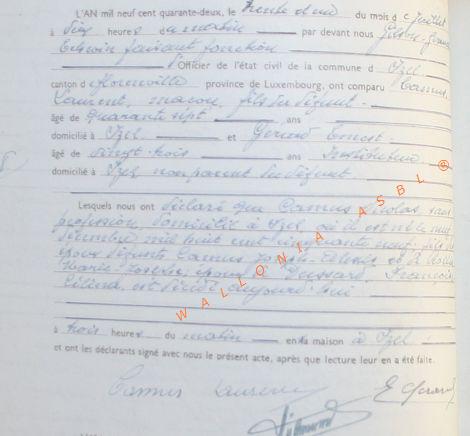 L'AN mil neuf cent quarante-deux, le trente et un du mois de juillet
à dix heures du matin par devant nous
Echevin faisant fonction
l'Officier de l'état civil de la commune d Izel
canton d Florenville province de Luxembourg, ont comparu Camus
Laurent, maçon, fils du défunt
âgé de quarante sept ans
domicilié à Izel et Ernest
âgé de vingt-trois ans Instituteur
domicilié à Izel non parent du défunt
Lesquels nous ont déclaré que Camus Nicolas, sans
profession, domicilié à Izel, où il est né le neuf
mil huit cent cinquante neuf, fils de
époux défunts Camus et de
Marie Josèphe, époux de
est décédé aujourd'hui
à trois heures du matin en sa maison à Izel
et ont les déclarants signé avec nous le présent acte, après que lecture leur en a été faite.
Camus Laurent E
WALLONIA ASBL ®